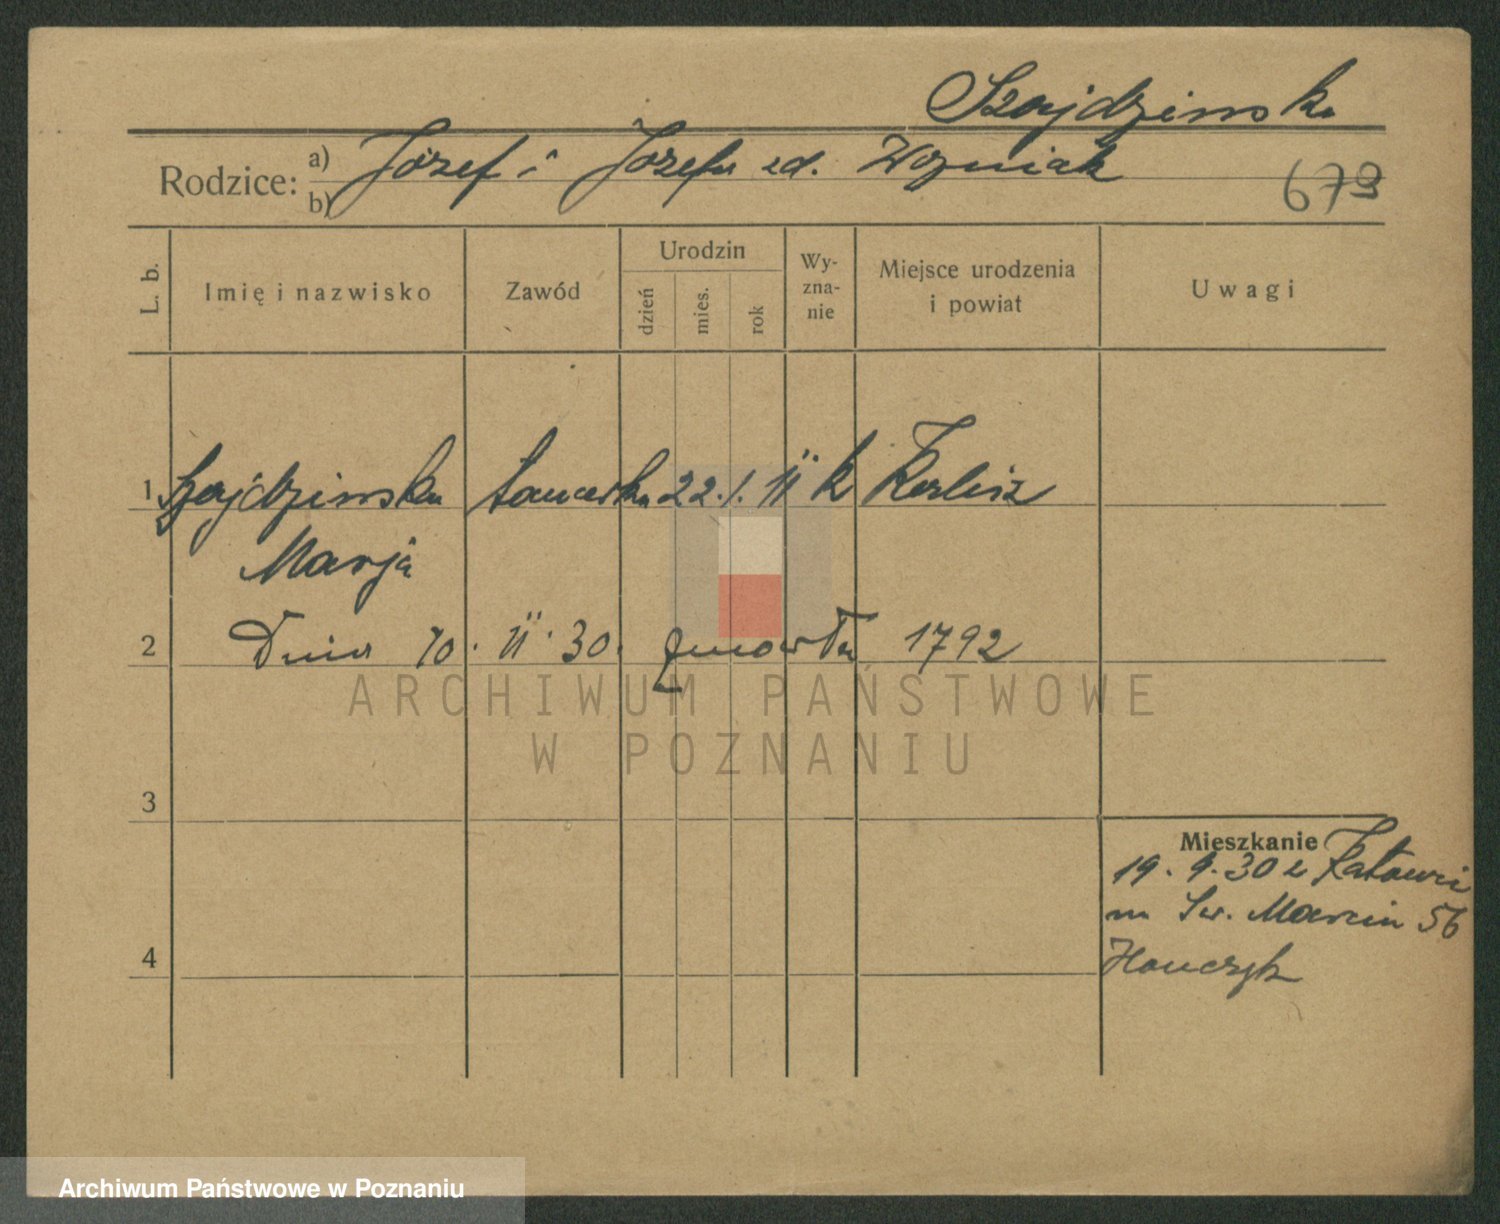 Szajdzinska
Rodzice: a) Józef i Józefa zd. Wozniak
b)
679
L. b. Imię i nazwisko Zawód Urodzin dzień mies. rok Wy-zna-nie Miejsce urodzenia i powiat Uwagi
1 Szajdzinska tancerka 22. 1. 11 k Kalisz
Marja
2 Dnia 10. 11. 30. zmarła 1792
ARCHIWUM PAŃSTWOWE
W POZNANIU
3
Mieszkanie
19. 9. 30 z Katowic
na Św. Marcin 56
4
Archiwum Państwowe w Poznaniu